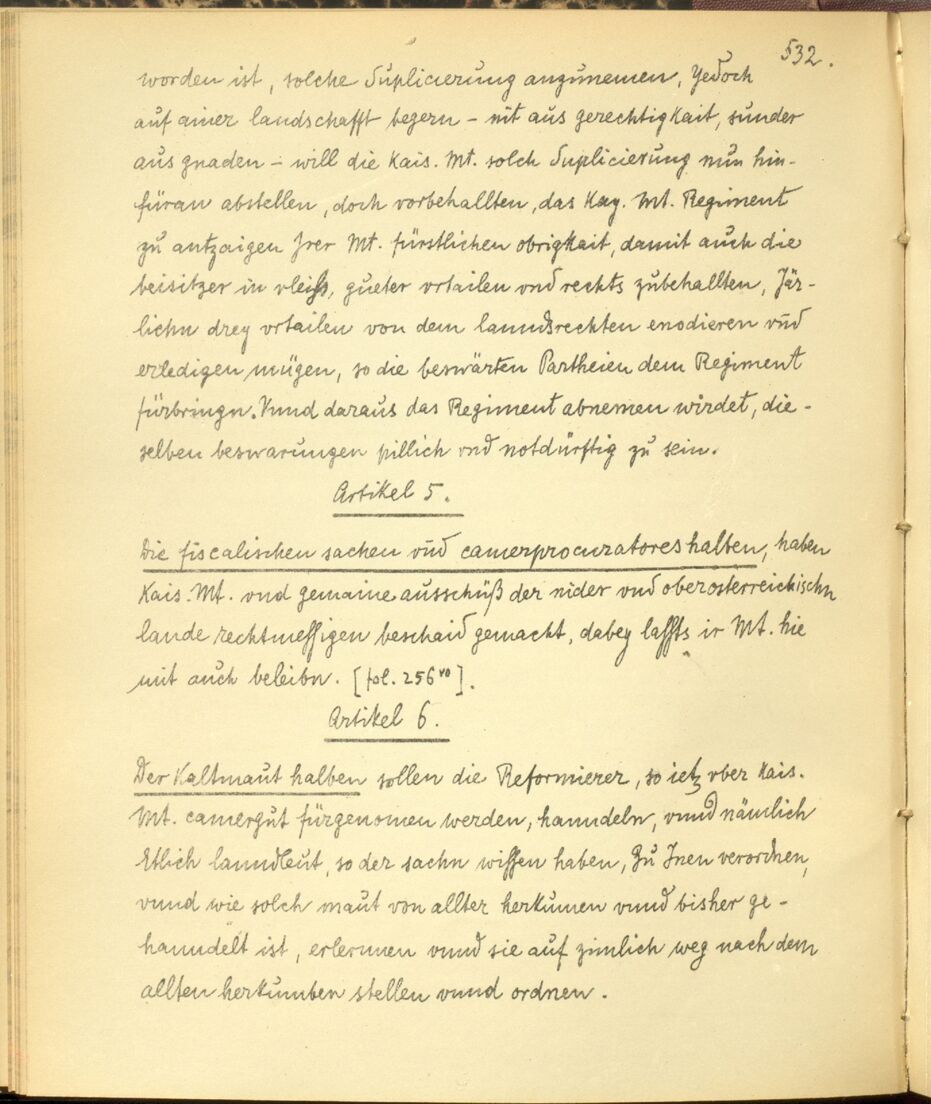 532.
worden ist, solche Suplicierung anzunemen, Yedoch
auf ainer landschafft begern – nit aus gerechtigkait, sunder
aus gnaden – will die Kais. Mt. solch Suplicierung nun hin-
füran abstellen, doch vorbehallten, das Kay. Mt. Regiment
zu antzaigen Jrer Mt. fürstlichen obrigkait, damit auch die
beisitzer in vleiss, gueter vrtailen vnd rechts zubehallten, Jär-
lichn drey vrtailen von dem lanndsrechten enodieren vnd
erledigen mügen, so die beswärten Partheien dem Regiment
fürbringn. Vnnd daraus das Regiment abnemen wirdet, die-
selben beswarungen pillich vnd notdürftig zu sein.
Artikel 5.
Die fiscalischen sachen vnd camerprocuratores halten, haben
Kais. Mt. vnd gemaine ausschüß der nider vnd oberosterreichischn
lande rechtmessigen beschaid gemacht, dabey laffts ir Mt. hie
mit auch beleibn. [fol. 256 vo].
Artikel 6.
Der Kaltmaut halben sollen die Reformierer, so ietz vber Kais.
Mt. camergut fürgenomen werden, hanndeln, vnnd nämlich
Etlich lanndleut, so der sachn wissen haben, zu Jnen verordnen,
vnnd wie solch maut von allter herkumen vnnd bisher ge-
hanndelt ist, erlernnen vnnd sie auf zimlich weg nach dem
allten herkumben stellen vnnd ordnen.